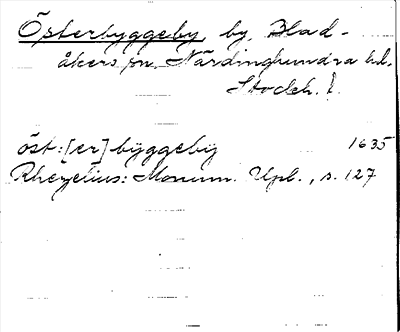 Österbyggeby by, Blad-
åkers sn, Närdinghundra hd.
Stockh. l.
öst:[er]byggeby 1635
Rhezelius: Monum. Upl., s. 127